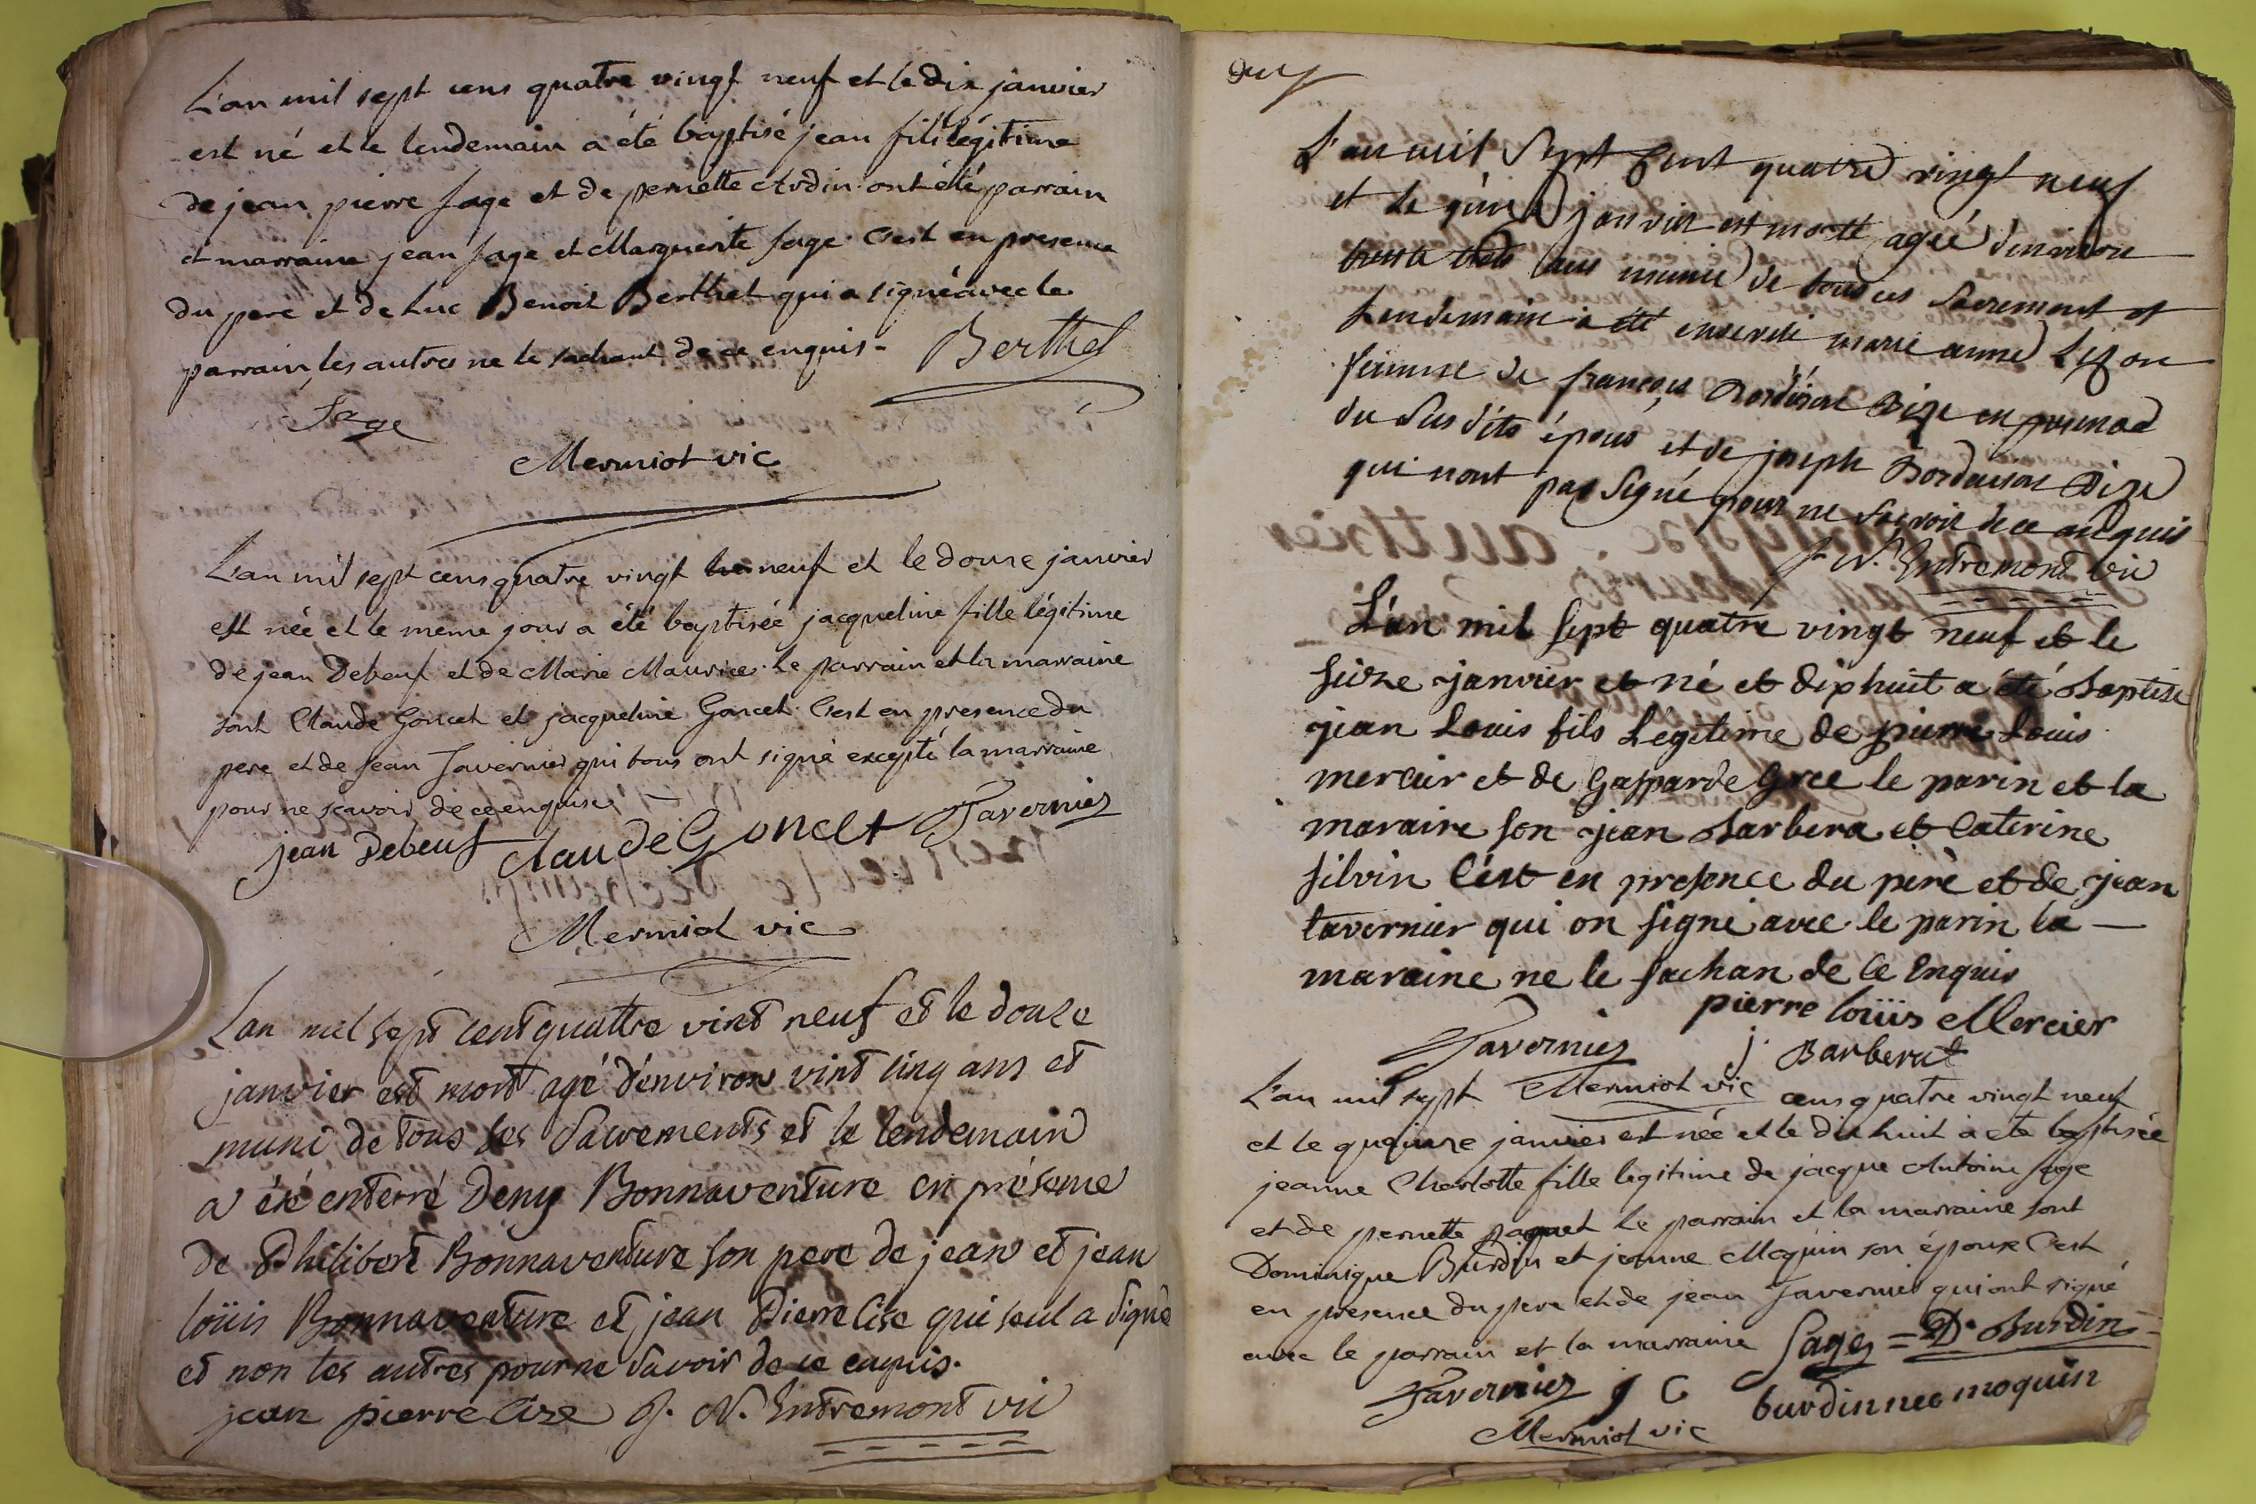 L'an mil sept cens quatre vingt neuf et le dix janvier
est né et le lendemain a été baptisé jean fils légitime
de jean pierre sage et de pernette Ardin. ont été parrain
et marraine jean sage et Marguerite sage. C'est en presence
du pere et de Luc Benoit Berthet qui a signé avec le
parrain, les autres ne le sachant de ce enquis. Berthet
Sage
Mermiot vic
L'an mil sept cens quatre vingt neuf et le douze janvier
est née et le meme jour a été baptisée jacqueline fille légitime
de jean Debeuf et de Marie Maurice. Le parrain et la marraine
sont Claude Goncet et jacqueline Goncet. C'est en presence du
pere et de jean Tavernier qui tous ont signé excepté la marraine
pour ne sçavoir de ce enquise
jean Debeuf Claude Goncet Tavernier
Mermiot vic
Lan mil sept cent quattre vint neuf et le douze
janvier est mort agé d'environ vint cinq ans et
muni de tous ses Sacrements et le lendemain
a été enterré Deny Bonnaventure en présence
de Philibert Bonnaventure son pere de jean et jean
loüis Bonnaventure et jean Pierre Cise qui seul a Signé
et non les autres pour ne Savoir de ce enquis.
jean pierre Cise J. N. Entremont vic
L'an mil Sept Cent quatre vingt neuf
et le janvier est morte agée d'environ
ans munie de tous ses Sacrement et
Lendemain a été enterrée marie anne
femme de françois en presence
du Susdits épous et de joseph
qui nont pas Signé pour ne Sçavoir de ce enquis
J N. Entremont vic
L'an mil sept quatre vingt neuf et le
seize janvier et né et dixhuit a été Baptise
jean Louis fils Légitime de pierre Louis
mercier et de Gasparde Gree le parin et la
maraire son jean Barbera et Caterine
silvin C'est en presence du père et de jean
tavernier qui on signé avec le parin la —
maraine ne le sachan de ce Enquis
pierre loüis Mercier
Tavernier j. Barberat
L'an mil sept Mermiot vic cens quatre vingt neuf
et le quinze janvier est née et le dix huit a été baptisée
jeanne Charlotte fille legitime de jacque Antoine sage
et de pernette paquet Le parrain et la marraine sont
Dominique Burdin et jeanne Moquin son épouse C'est
en presence du pere et de jean Tavernier qui ont signé
avec le parrain et la marraine Sage = D. Burdin
Tavernier j C burdin née moquin
Mermiot vic